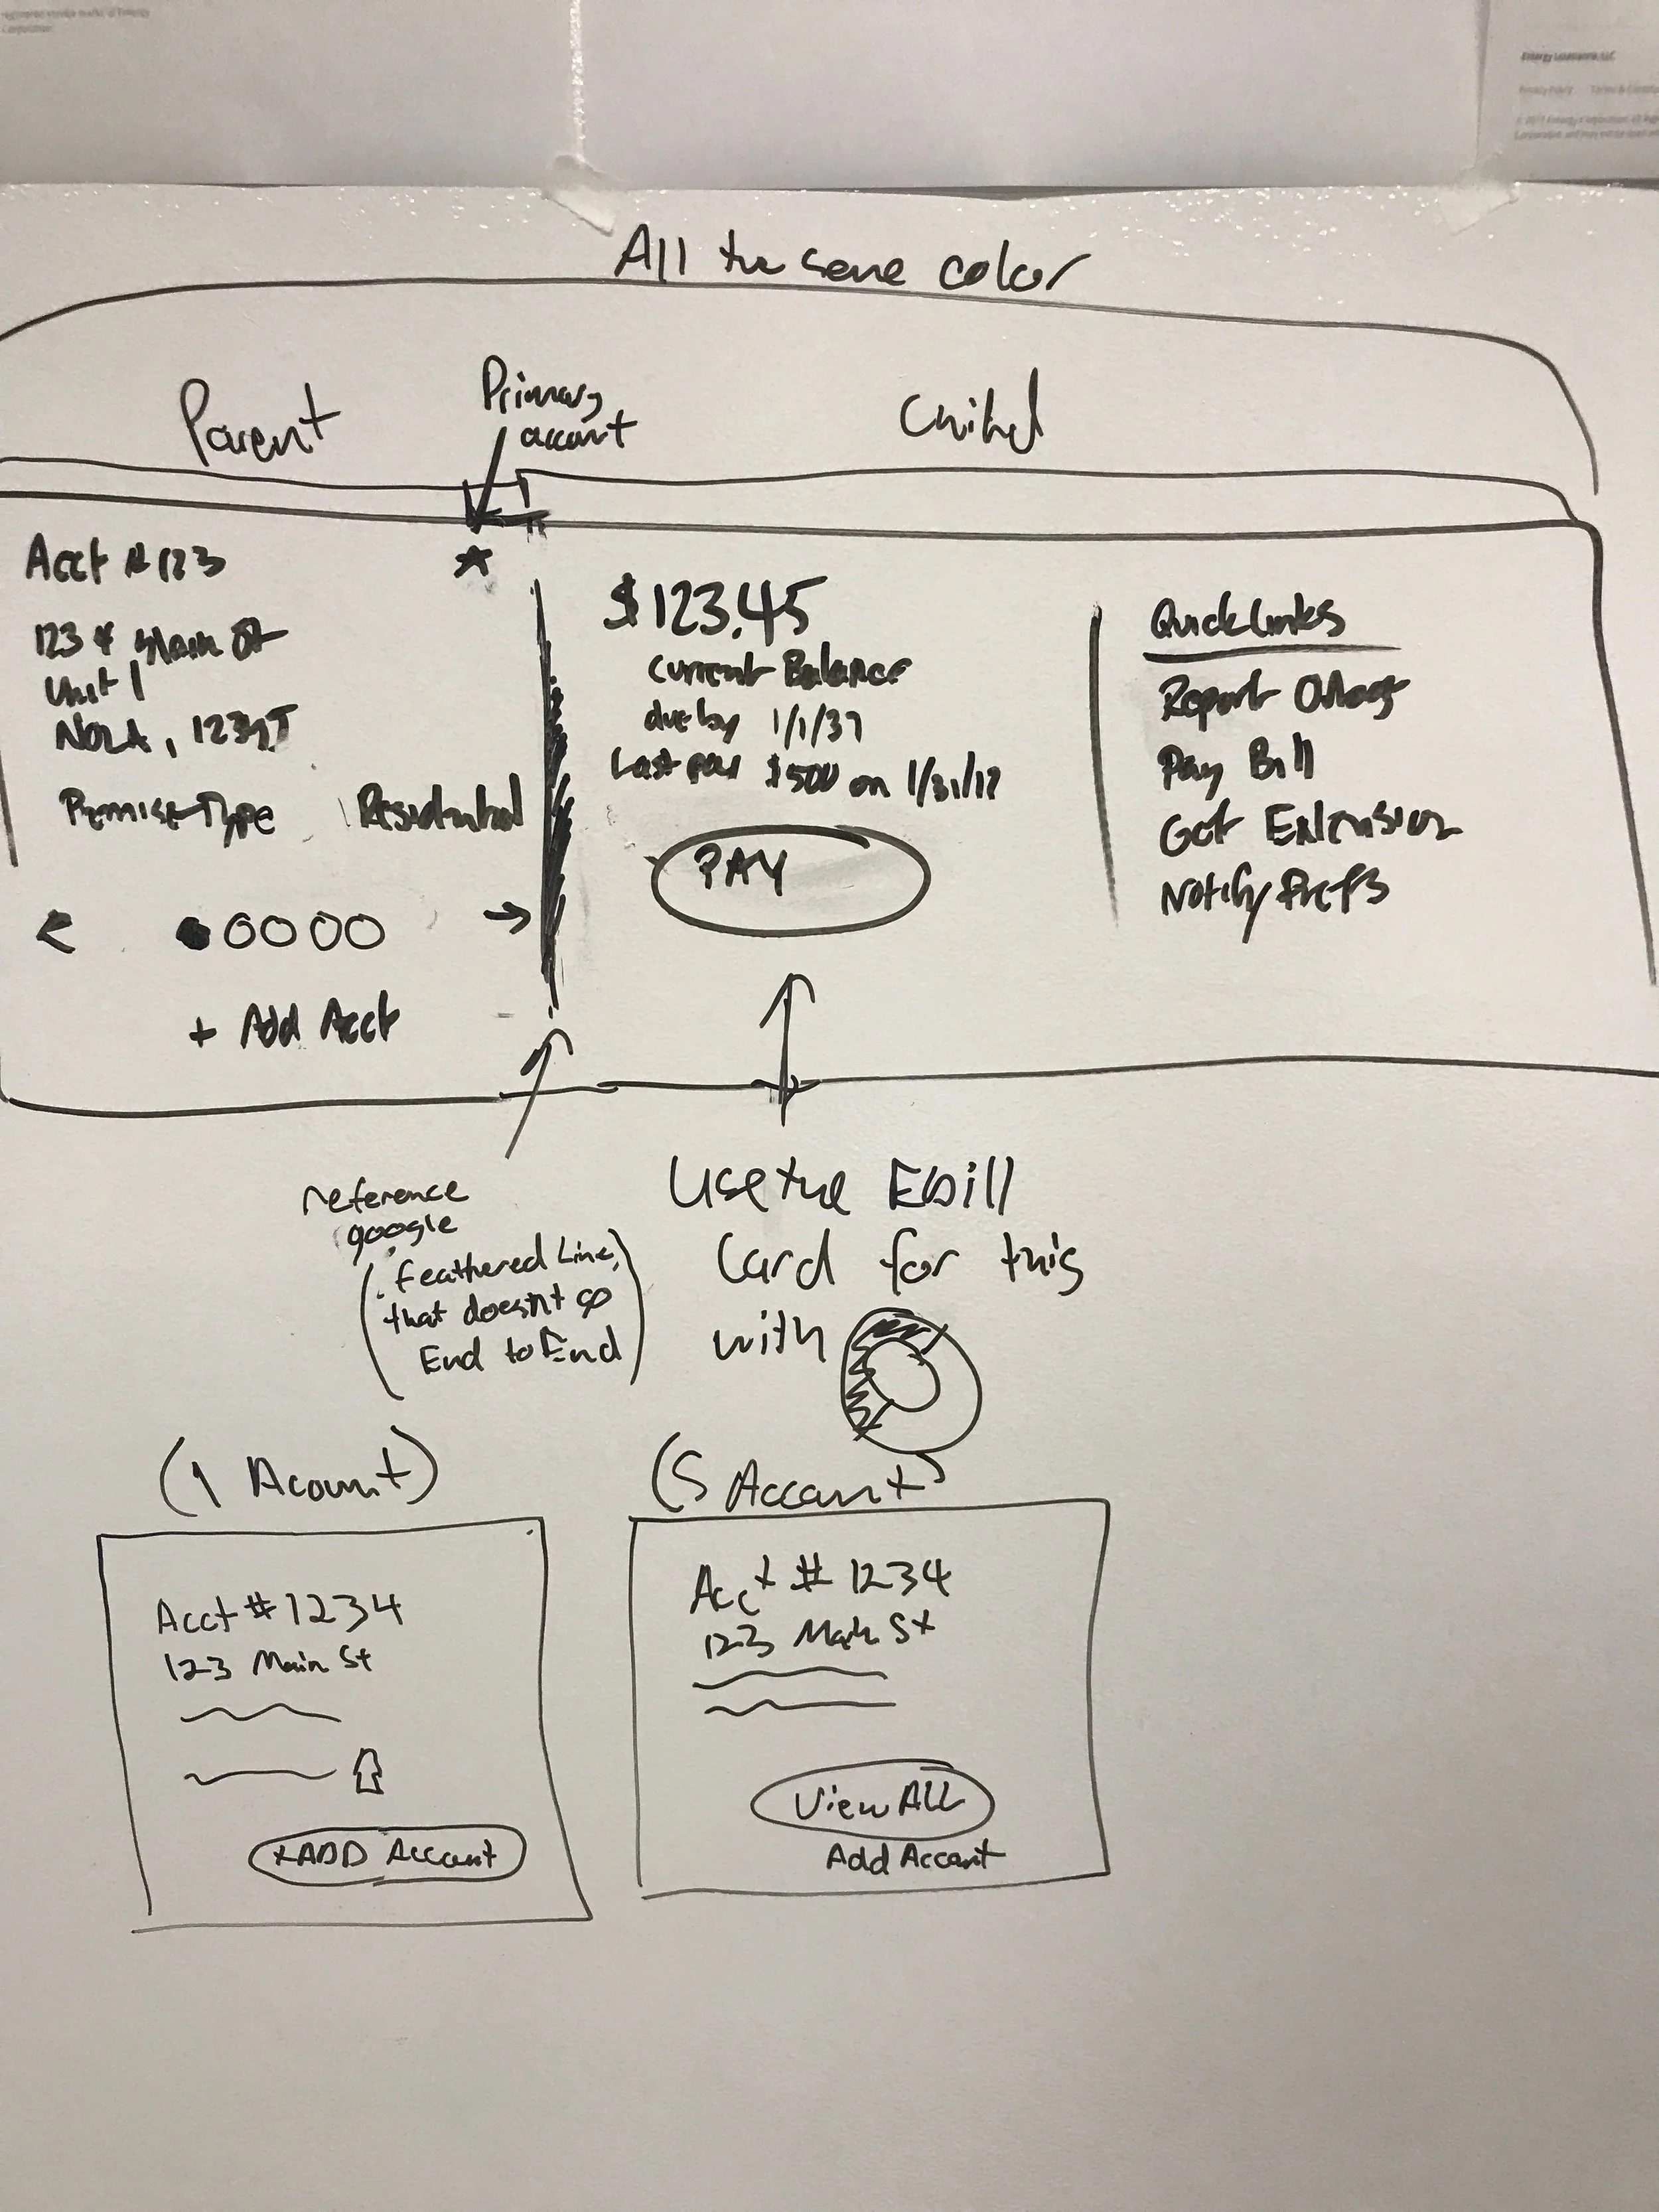 registered service marks of Entergy
Corporation.
Entergy Louisiana, LLC
Privacy Policy Terms &
All the same color
Parent
Primary
account
Child
Acct # 123
★
123 4 Main St
Unit 1
NOLA, 12345
Premise Type Residential
< →
+ Add Acct
$123.45
Current Balance
due by 1/1/37
Last pay $500 on 1/31/17
PAY
QuickLinks
Report Outage
Pay Bill
Get Extension
Notify Prefs
reference
google
(feathered Line,
that doesnt go
End to End)
Use the Ebill
Card for this
with
(1 Acount)
Acct # 1234
123 Main St
+ADD Account
(5 Account)
Acct # 1234
123 Main St
View ALL
Add Account